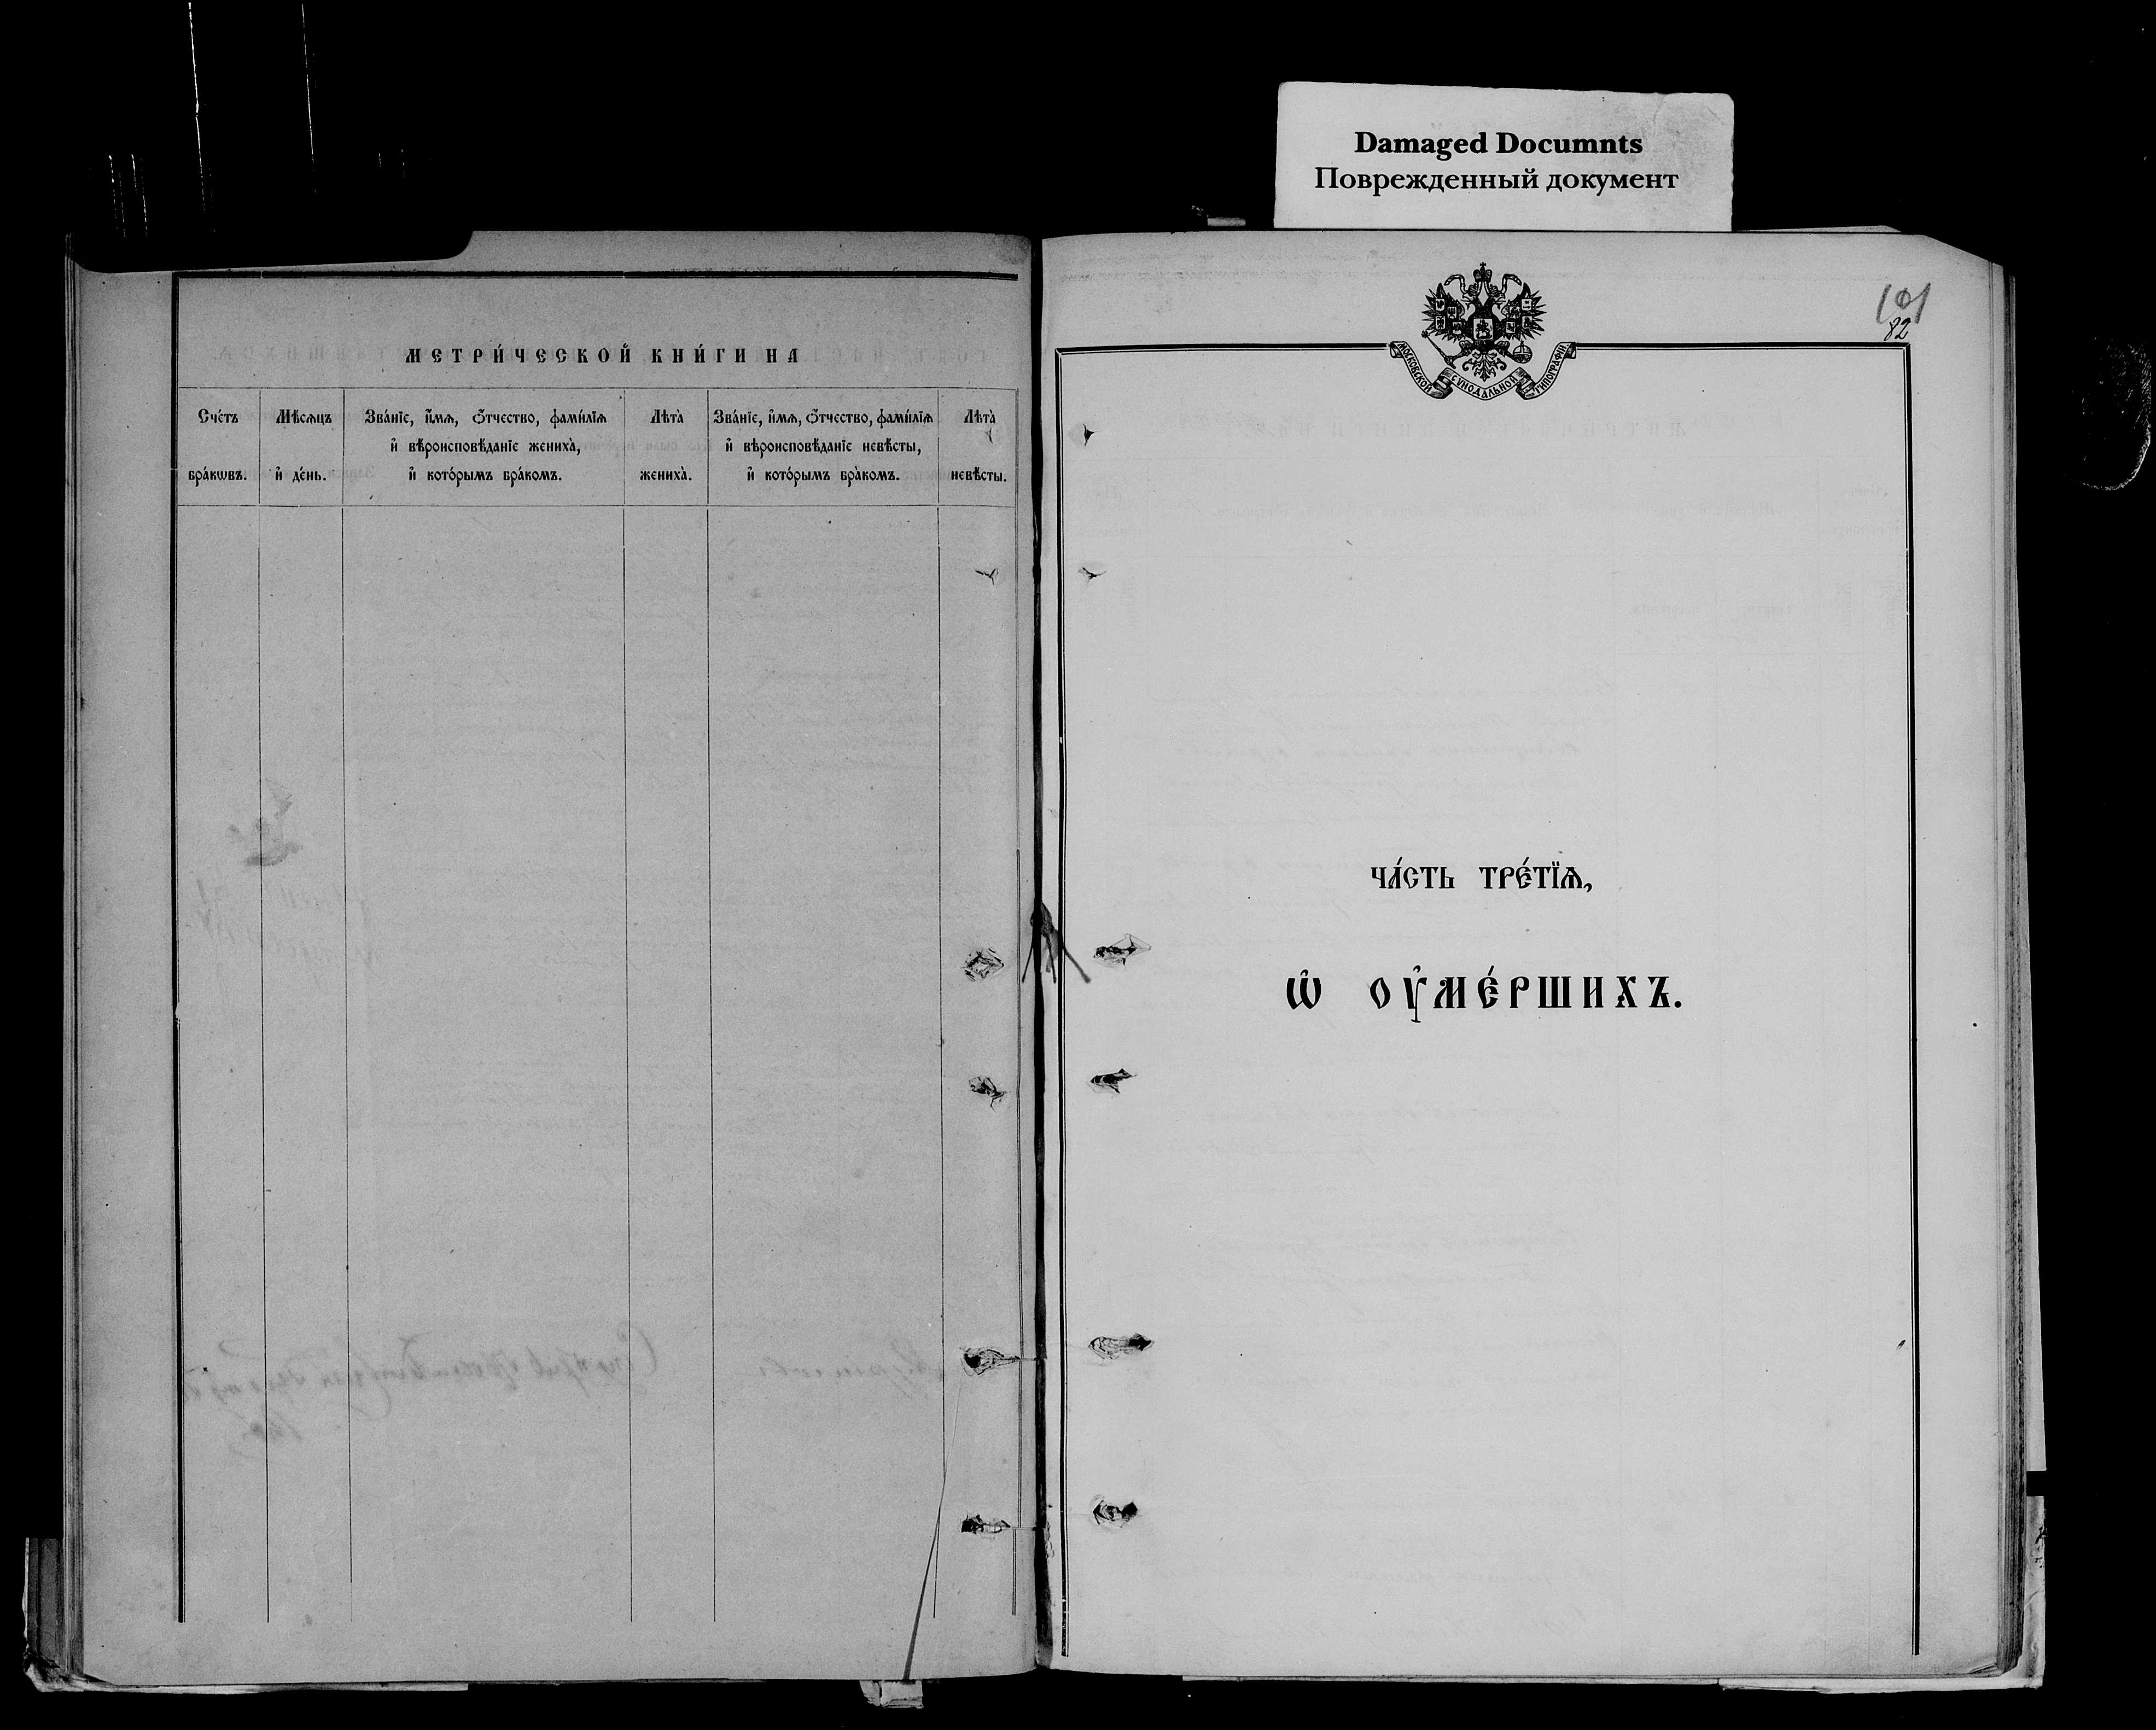 Damaged Documnts
Поврежденный документ
МЕТРИ́ЧЕСКОЙ КНИ́ГИ НА
Сче́тъ бра́кѡвъ.
Мѣ́сѧцъ и҆ де́нь.
Зва́нїе, и҆́мѧ, ѻ҆́тчество, фами́лїѧ
и҆ вѣроисповѣ́данїе жениха̀,
и҆ кото́рымъ бра́комъ.
Лѣта̀ жениха̀.
Зва́нїе, и҆́мѧ, ѻ҆́тчество, фами́лїѧ
и҆ вѣроисповѣ́данїе невѣ́сты,
и҆ кото́рымъ бра́комъ.
Лѣта̀ невѣ́сты.
101
82
МОСКОВСКОЙ СѴНОДАЛЬНОЙ ТИПОГРАФІИ
ЧА́СТЬ ТРЕ́ТЇѦ,
Ѡ҆ ОУ҆МЕ́РШИХЪ.